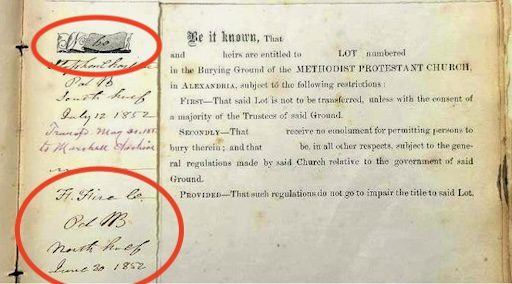 60
Pd B
South half
July 12 1852
Transfd May
to Marshall
Fire Co.
Pd B
North half
June 20 1852
Be it known, That
and heirs are entitled to LOT numbered
in the Burying Ground of the METHODIST PROTESTANT CHURCH,
in ALEXANDRIA, subject to the following restrictions:
FIRST—That said Lot is not to be transferred, unless with the consent of
a majority of the Trustees of said Ground.
SECONDLY—That receive no emolument for permitting persons to
bury therein; and that be, in all other respects, subject to the gene-
ral regulations made by said Church relative to the government of said
Ground.
PROVIDED—That such regulations do not go to impair the title to said Lot.